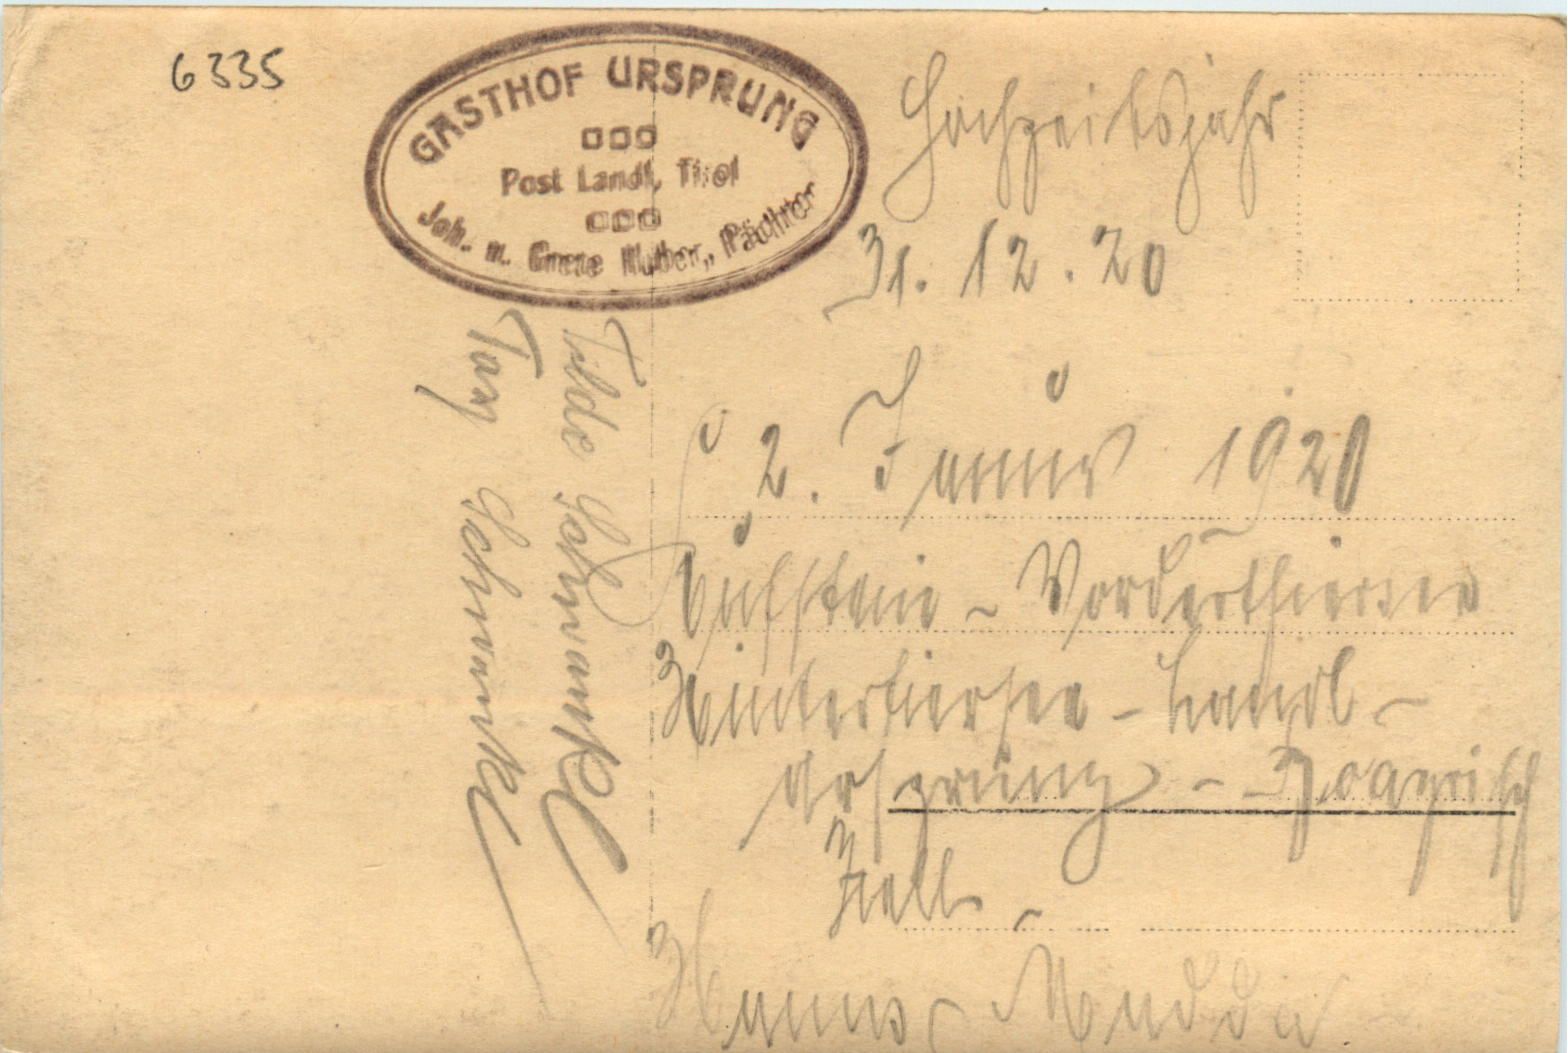 6335
GASTHOF URSPRUNG
Post Landl, Tirol
Joh. u. Grete Huber, Pächter
Hochzeitsjahr
31. 12. 20
2. Januar 1920
Kufstein - Vorderthiersee
Hinterthiersee - Landl -
Ursprung - Bayrisch
Zell -
Hanns
Tilde Schwankl
Schwankl